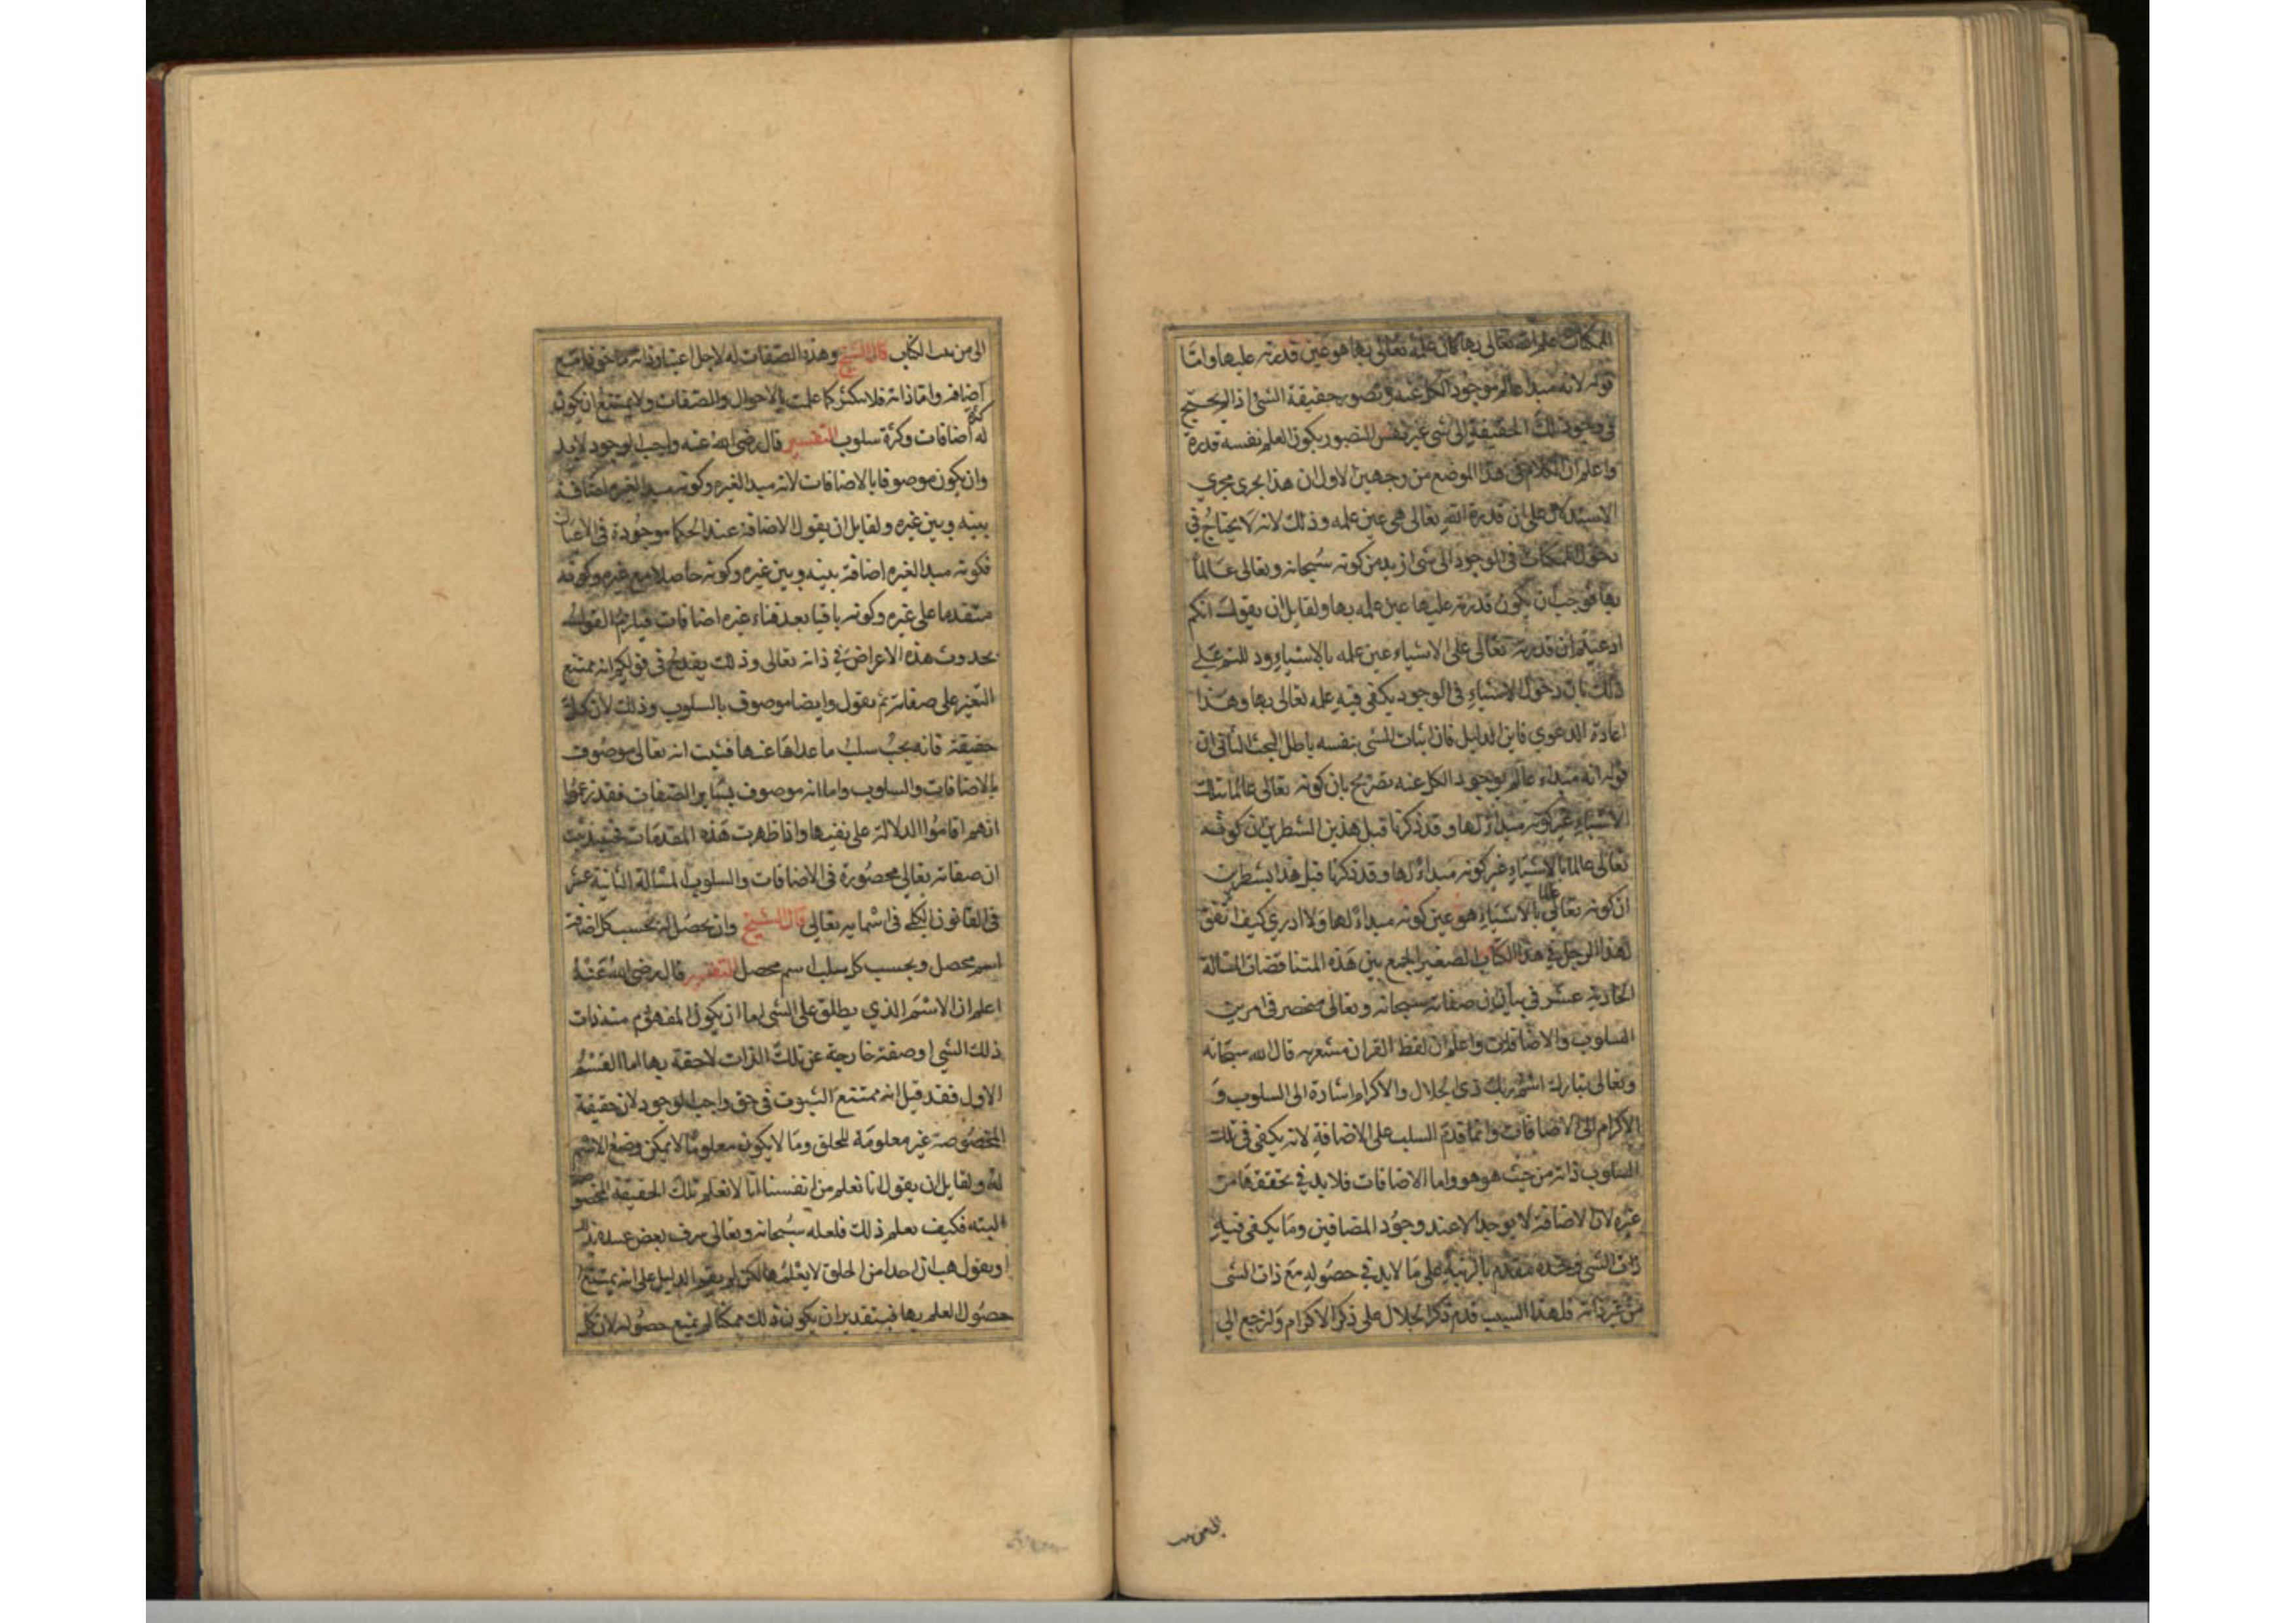 الممكنات علم الله تعالى بها كان علمه تعالى بها هو عين قدرته عليها واما
قوله لانه مبدا عالم بوجود الكل عنه وتصور حقيقة الشئ اذا لم يحتج
في وجود تلك الحقيقة الى شئ غير نفس التصور يكون العلم نفسه قدرة
واعلم ان الكلام في هذا الموضع من وجهين الاول ان هذا يجري مجري
الاستدلال على ان قدرة الله تعالى هي عين علمه وذلك لانه لا يحتاج في
دخول الممكنات في الوجود الى شئ ازيد من كونه سبحانه وتعالى عالما
بها فوجب ان يكون قدرته عليها عين علمه بها ولقايل ان يقول انكم
ادعيتم ان قدرته تعالى على الاشياء عين علمه بالاشياء ودللتم على
ذلك بان دخول الاشياء في الوجود يكفي فيه علمه تعالى بها وهذا
اعادة الدعوي فاين الدليل فان اثبات الشئ بنفسه باطل البحث الثاني ان
قوله انه مبداء عالم بوجود الكل عنه تصريح بان كونه تعالى عالما بتلك
الاشياء غير كونه مبداء لها وقد ذكرنا قبل هذين الشطرين ان كونه
تعالى عالما بالاشياء غير كونه مبداء لها وقد ذكرنا قبل هذا بشطرين
ان كونه تعالى عالما بالاشياء هو عين كونه مبداء لها ولا ادري كيف اتفق
لهذا الرجل في هذا الكتاب الصغير الجمع بين هذه المتناقضات المسالة
الحادية عشر في بيان ان صفاته سبحانه وتعالى منحصر في امرين
السلوب والاضافات واعلم ان لفظ القران مشعر به قال الله سبحانه
وتعالى تبارك اسم ربك ذي الجلال والاكرام اشارة الى السلوب و
الاكرام الى الاضافات وانما قدم السلب على الاضافة لانه يكفي في تلك
السلوب ذاته من حيث هو هو واما الاضافات فلا بد في تحققها من
غيره لان الاضافة لا يوجد الا عند وجود المضافين وما يكفي فيه
ذات الشئ وحده مقدم بالرتبة على ما لا بد في حصوله مع ذات الشى
من غير ذاته فلهذا السبب قدم ذكر الجلال على ذكر الاكرام ولنرجع الى
الى من
الى من الكتاب قال الشيخ وهذه الصفات له لاجل اعتبار ذاته ماخوذا مع
اضافة واما ذاته فلا تتكثر كما علمت بالاحوال والصفات ولا يمتنع ان يكون
له كثرة اضافات وكثرة سلوب التفسير قال رضي الله عنه واجب الوجود لا بد
وان يكون موصوفا بالاضافات لانه مبدا لغيره وكونه مبدا لغيره اضافة
بينه وبين غيره ولقايل ان يقول الاضافة عند الحكما موجودة في الاعيان
فكونه مبدا لغيره اضافة بينه وبين غيره وكونه حاصلا مع غيره وكونه
متقدما على غيره وكونه باقيا بعد فناء غيره اضافات فيلزم القول
بحدوث هذه الاعراض في ذاته تعالى وذلك يقدح في قولكم انه يمتنع
التغير على صفاته ثم يقول وايضا موصوف بالسلوب وذلك لان كل
حقيقة فانه يجب سلب ما عداها عنها فثبت انه تعالى موصوف
بالاضافات والسلوب واما انه موصوف بساير الصفات فقد زعموا
انهم اقاموا الدلالة على نفيها واذا ظهرت هذه المقدمات فحينئذ ثبت
ان صفاته تعالى محصورة في الاضافات والسلوب المسالة الثانية عشر
في القانون الكلي في اسمايه تعالى قال الشيخ وان يحصل له بحسب كل اضافة
اسم محصل وبحسب كل سلب اسم محصل التفسير قال رضي الله عنه
اعلم ان الاسم الذي يطلق على الشى اما ان يكون المفهوم منه ذات
ذلك الشي او صفة خارجة عن تلك الذات لاحقة بها اما القسم
الاول فقد قيل انه ممتنع الثبوت في حق واجب الوجود لان حقيقة
المخصوصة غير معلومة للخلق وما لا يكون معلوما لا يمكن وضع الاسم
له ولقايل ان يقول انا نعلم من انفسنا انا لا نعلم تلك الحقيقة المخصوصة
البته فكيف نعلم ذلك فلعله سبحانه وتعالى عرف بعض عبيده
او يقول هب ان احدا من الخلق لا يعلمها لكن لم يقم الدليل على انه يمتنع
حصول العلم بها فبتقدير ان يكون ذلك ممكنا لم يمتنع حصوله لان كل